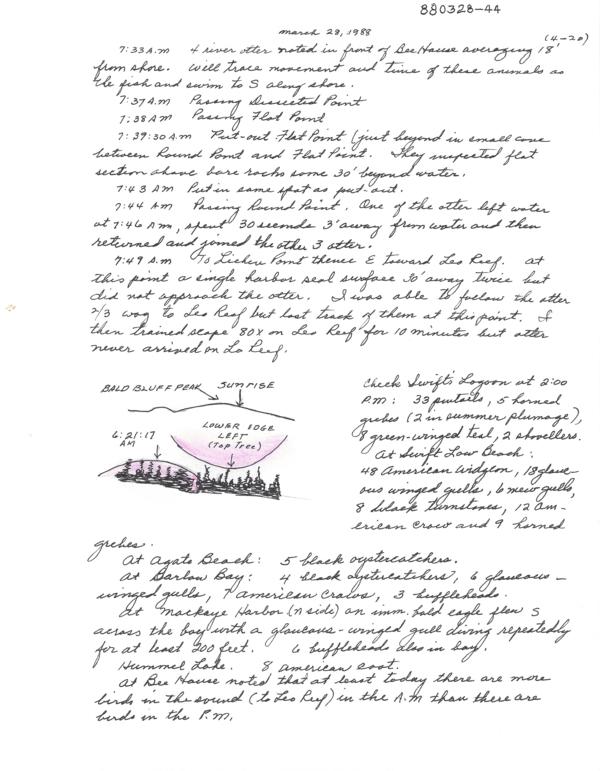 880328-44
March 28, 1988
(4-20)
7:33 A.M 4 river otter noted in front of Bee House averaging 18'
from shore. Will trace movement and time of these animals as
the fish and swim to S along shore.
7:37 A.M Passing Dissected Point
7:38 AM Passing Flat Point
7:39:30 A.M Put-out Flat Point (just beyond in small cove
between Round Point and Flat Point. They inspected flat
section above bare rocks some 30' beyond water.
7:43 AM Put in same spot as put-out.
7:44 AM Passing Round Point. One of the otter left water
at 7:46 AM, spent 30 seconds 3' away from water and then
returned and joined the other 3 otter.
7:49 A.M To Lichen Point thence E toward Leo Reef. At
this point a single harbor seal surface 30' away twice but
did not approach the otter. I was able to follow the otter
2/3 way to Leo Reef but lost track of them at this point. I
then trained scope 80X on Leo Reef for 10 minutes but otter
never arrived on Lo Reef.
BALD BLUFF PEAK SUNRISE
LOWER EDGE
LEFT
(Top Tree)
6:21:17
AM
Check Swifts Lagoon at 2:00
P.M: 33 pintails, 5 horned
grebes (2 in summer plumage),
8 green-winged teal, 2 shovellers.
At Swift Low Beach:
48 American widgeon, 18 glauc-
ous winged gulls, 6 mew gulls,
8 black turnstones, 12 Am-
erican crow and 9 horned
grebes.
At Agate Beach: 5 black oystercatchers.
At Barlow Bay: 4 black oystercatchers, 6 glaucous-
winged gulls, 7 American crows, 3 buffleheads.
At Mackaye Harbor (N side) an imm. bald eagle flew S
across the bay with a glaucous-winged gull diving repeatedly
for at least 200 feet. 6 buffleheads also in bay.
Hummel Lake. 8 American coot.
At Bee House noted that at least today there are more
birds in the sound (to Leo Reef) in the A.M than there are
birds in the P.M.